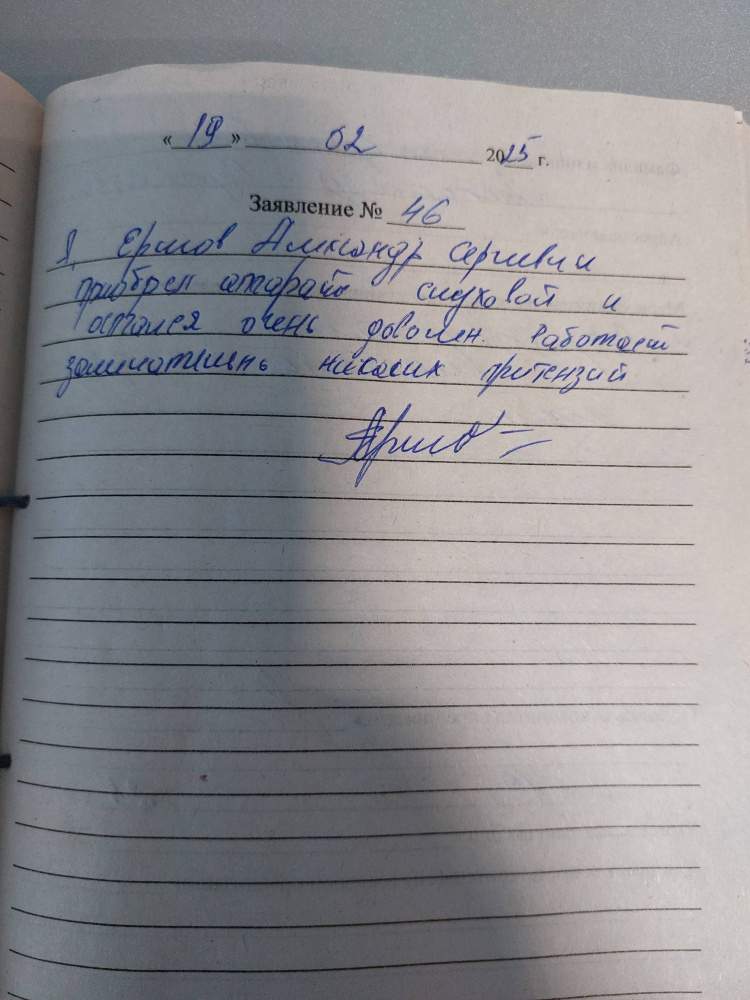 « 19 » 02 2025 г.
Заявление № 46
Я, Ершов Александр Сергеевич
приобрел апарат слуховой и
остался очень доволен. Работает
замичательнь никаких притензий